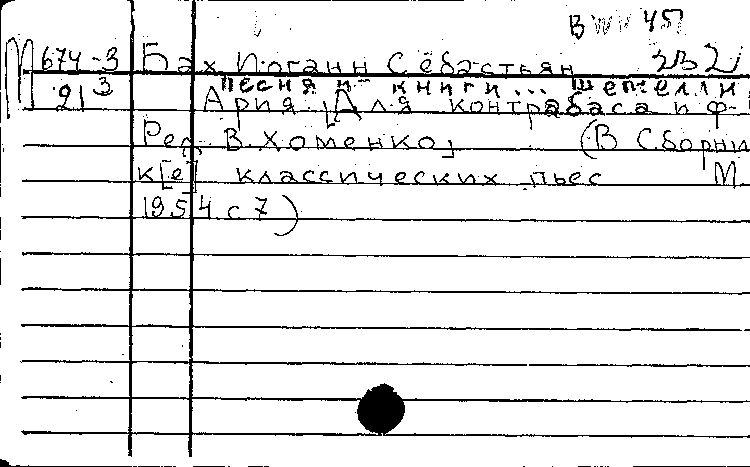 BWV 451
М 674-3 Бах Иоганн Себастьян
21 3 песня из книги... Шемелли
Ария. [Для контрабаса и ф-
Ред. В. Хоменко] (В Сборни
к[е] классических пьес М
1954 с 7)